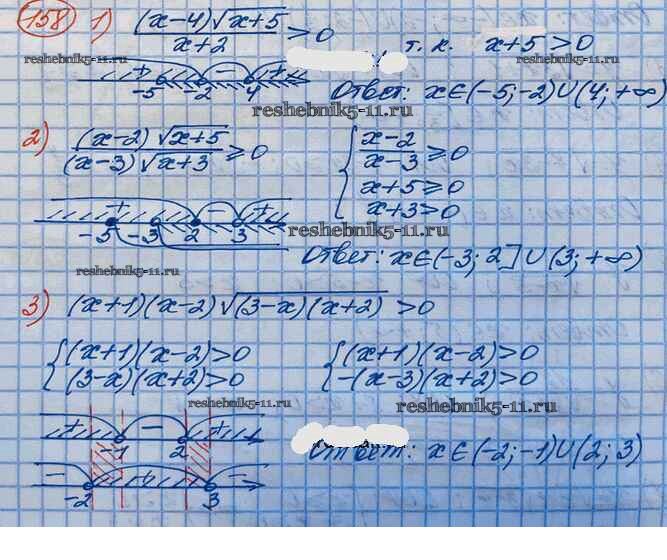 158 1) (x-4)√(x+5) / x+2 > 0
т. к. x+5 > 0
reshebnik5-11.ru
reshebnik5-11.ru
+ - +
-5 -2 4
Ответ: x∈(-5;-2)∪(4;+∞)
reshebnik5-11.ru
2) (x-2)√(x+5) / (x-3)√(x+3) ≥ 0
{ x-2 / x-3 ≥ 0
x+5 ≥ 0
x+3 > 0
+ - +
-5 -3 2 3
reshebnik5-11.ru
Ответ: x∈(-3; 2]∪(3;+∞)
reshebnik5-11.ru
3) (x+1)(x-2)√((3-x)(x+2)) > 0
{ (x+1)(x-2)>0
(3-x)(x+2)>0
{ (x+1)(x-2)>0
-(x-3)(x+2)>0
reshebnik5-11.ru
reshebnik5-11.ru
+ - +
-1 2
Ответ: x∈(-2;-1)∪(2;3)
- + -
-2 3